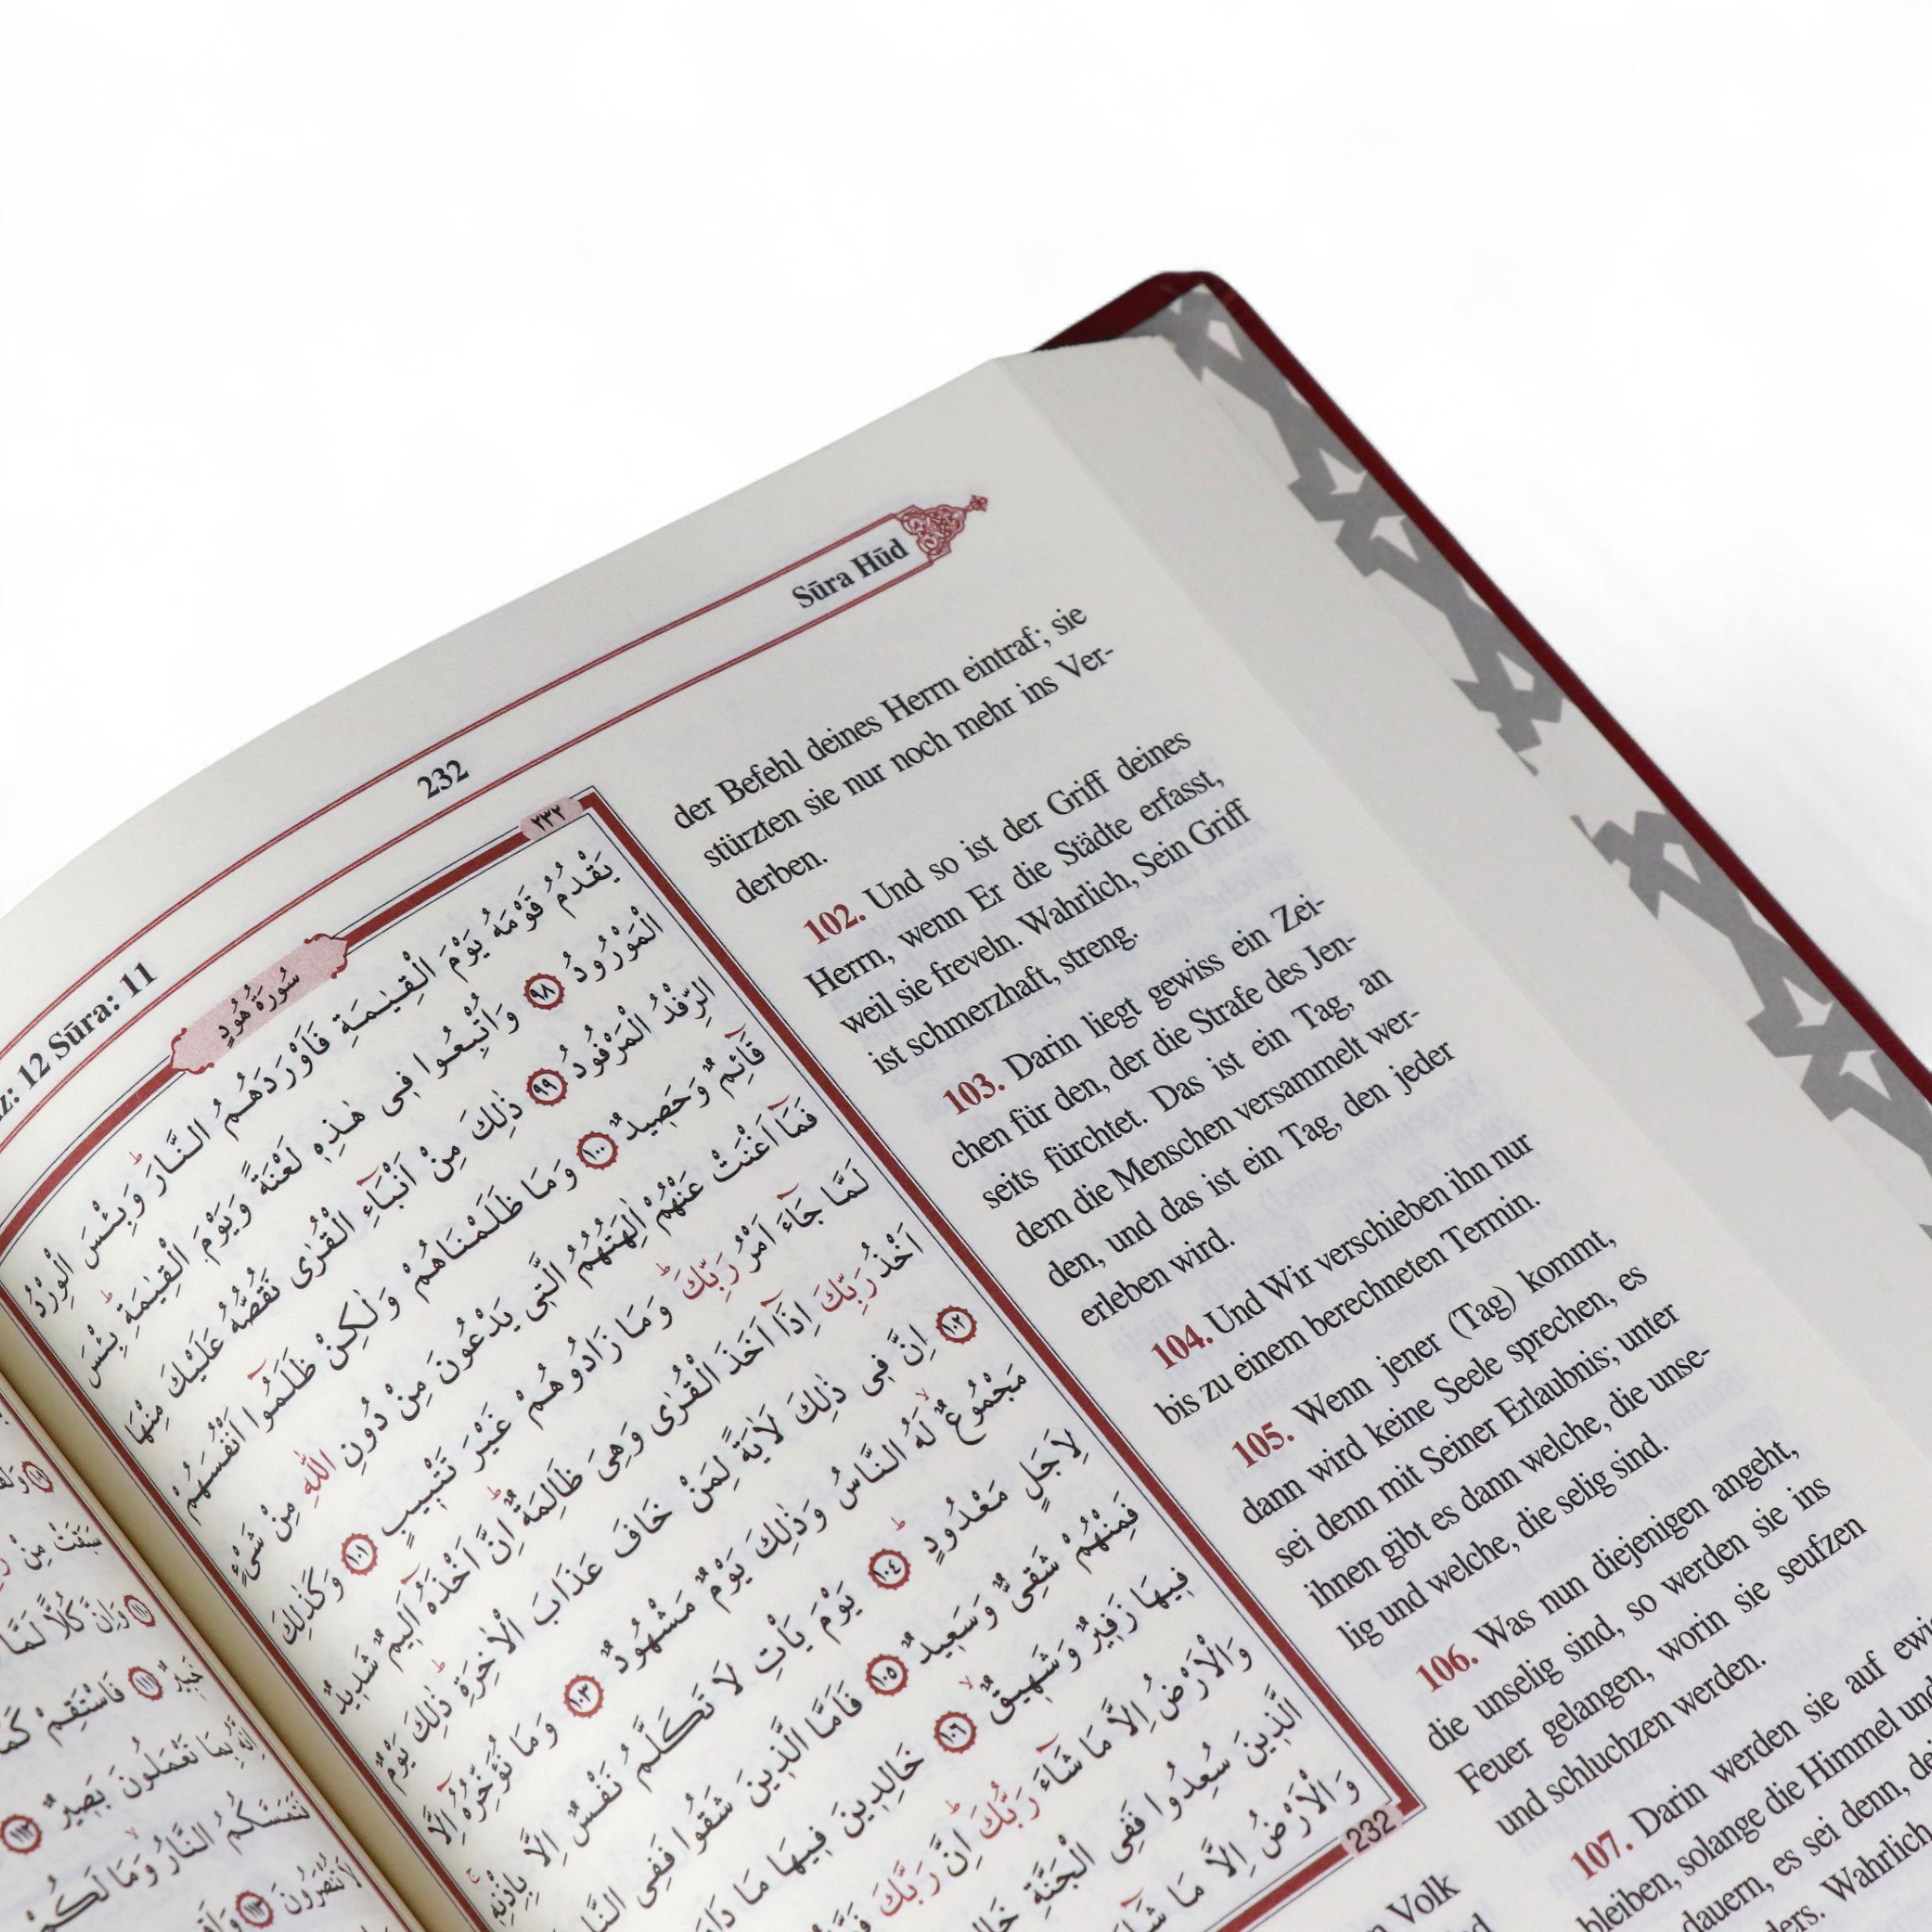 12 Sūra: 11
232
Sūra Hūd
٢٣٢
سُورَةُ هُودٍ
يَقْدُمُ قَوْمَهُ يَوْمَ الْقِيٰمَةِ فَاَوْرَدَهُمُ النَّارَ وَبِئْسَ الْوِرْدُ
الْمَوْرُودُ ٩٨ وَاُتْبِعُوا فِى هٰذِهٖ لَعْنَةً وَيَوْمَ الْقِيٰمَةِ بِئْسَ
الرِّفْدُ الْمَرْفُودُ ٩٩ ذٰلِكَ مِنْ اَنْبَاءِ الْقُرٰى نَقُصُّهُ عَلَيْكَ مِنْهَا
قَائِمٌ وَحَصِيدٌ ١٠٠ وَمَا ظَلَمْنَاهُمْ وَلٰكِنْ ظَلَمُوا اَنْفُسَهُمْ
فَمَا اَغْنَتْ عَنْهُمْ اٰلِهَتُهُمُ الَّتِى يَدْعُونَ مِنْ دُونِ اللّٰهِ مِنْ شَىْءٍ
لَمَّا جَاءَ اَمْرُ رَبِّكَ وَمَا زَادُوهُمْ غَيْرَ تَتْبِيبٍ ١٠١ وَكَذٰلِكَ
اَخْذُ رَبِّكَ اِذَا اَخَذَ الْقُرٰى وَهِىَ ظَالِمَةٌ اِنَّ اَخْذَهُ اَلِيمٌ شَدِيدٌ
١٠٢ اِنَّ فِى ذٰلِكَ لَاٰيَةً لِمَنْ خَافَ عَذَابَ الْاٰخِرَةِ ذٰلِكَ يَوْمٌ
مَجْمُوعٌ لَهُ النَّاسُ وَذٰلِكَ يَوْمٌ مَشْهُودٌ ١٠٣ وَمَا نُؤَخِّرُهُ اِلَّا
لِاَجَلٍ مَعْدُودٍ ١٠٤ يَوْمَ يَأْتِ لَا تَكَلَّمُ نَفْسٌ اِلَّا بِاِذْنِهٖ
فَمِنْهُمْ شَقِىٌّ وَسَعِيدٌ ١٠٥ فَاَمَّا الَّذِينَ شَقُوا فَفِى
فِيهَا زَفِيرٌ وَشَهِيقٌ ١٠٦ خَالِدِينَ فِيهَا مَا
وَالْاَرْضُ اِلَّا مَا شَاءَ رَبُّكَ اِنَّ رَبَّكَ
الَّذِينَ سُعِدُوا فَفِى الْجَنَّةِ
وَالْاَرْضُ اِلَّا مَا
232
der Befehl deines Herrn eintraf; sie
stürzten sie nur noch mehr ins Ver-
derben.
102. Und so ist der Griff deines
Herrn, wenn Er die Städte erfasst,
weil sie freveln. Wahrlich, Sein Griff
ist schmerzhaft, streng.
103. Darin liegt gewiss ein Zei-
chen für den, der die Strafe des Jen-
seits fürchtet. Das ist ein Tag, an
dem die Menschen versammelt wer-
den, und das ist ein Tag, den jeder
erleben wird.
104. Und Wir verschieben ihn nur
bis zu einem berechneten Termin.
105. Wenn jener (Tag) kommt,
dann wird keine Seele sprechen, es
sei denn mit Seiner Erlaubnis; unter
ihnen gibt es dann welche, die unse-
lig und welche, die selig sind.
106. Was nun diejenigen angeht,
die unselig sind, so werden sie ins
Feuer gelangen, worin sie seufzen
und schluchzen werden.
107. Darin werden sie auf
bleiben, solange die Himmel
dauern, es sei denn,
Wahrlich
Volk
١١١ فَاسْتَقِمْ
بِمَا تَعْمَلُونَ بَصِيرٌ ١١٢
النَّارُ وَمَا لَكُمْ
١١٣